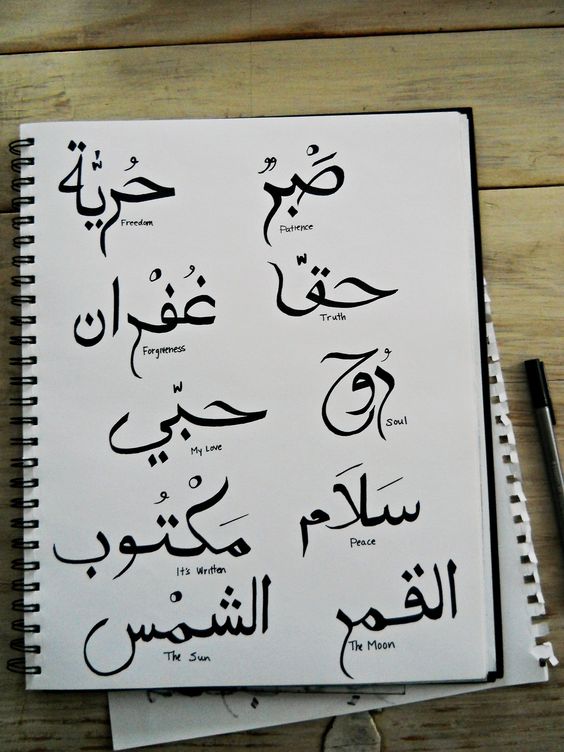 حُريّة
Freedom
صَبْرٌ
Patience
غُفْران
Forgiveness
حقّا
Truth
حبّي
My Love
رُوح
Soul
مَكْتُوب
It's Written
سَلَام
Peace
الشمْس
The Sun
القمر
The Moon